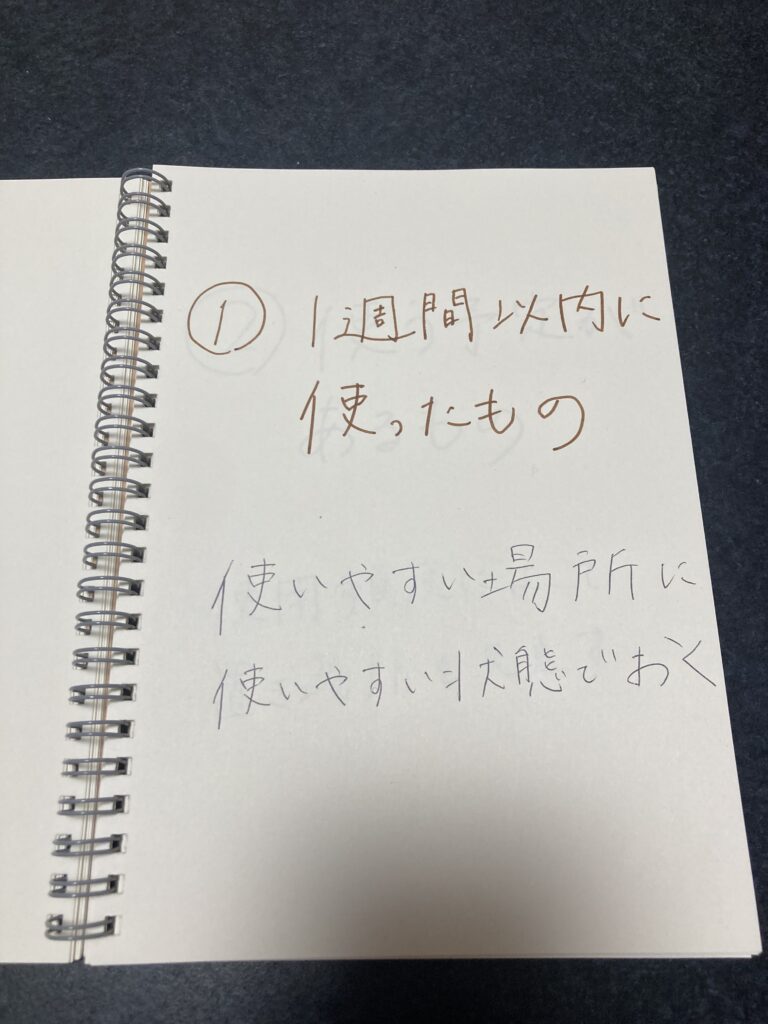 ① 1週間以内に
使ったもの
使いやすい場所に
使いやすい状態でおく